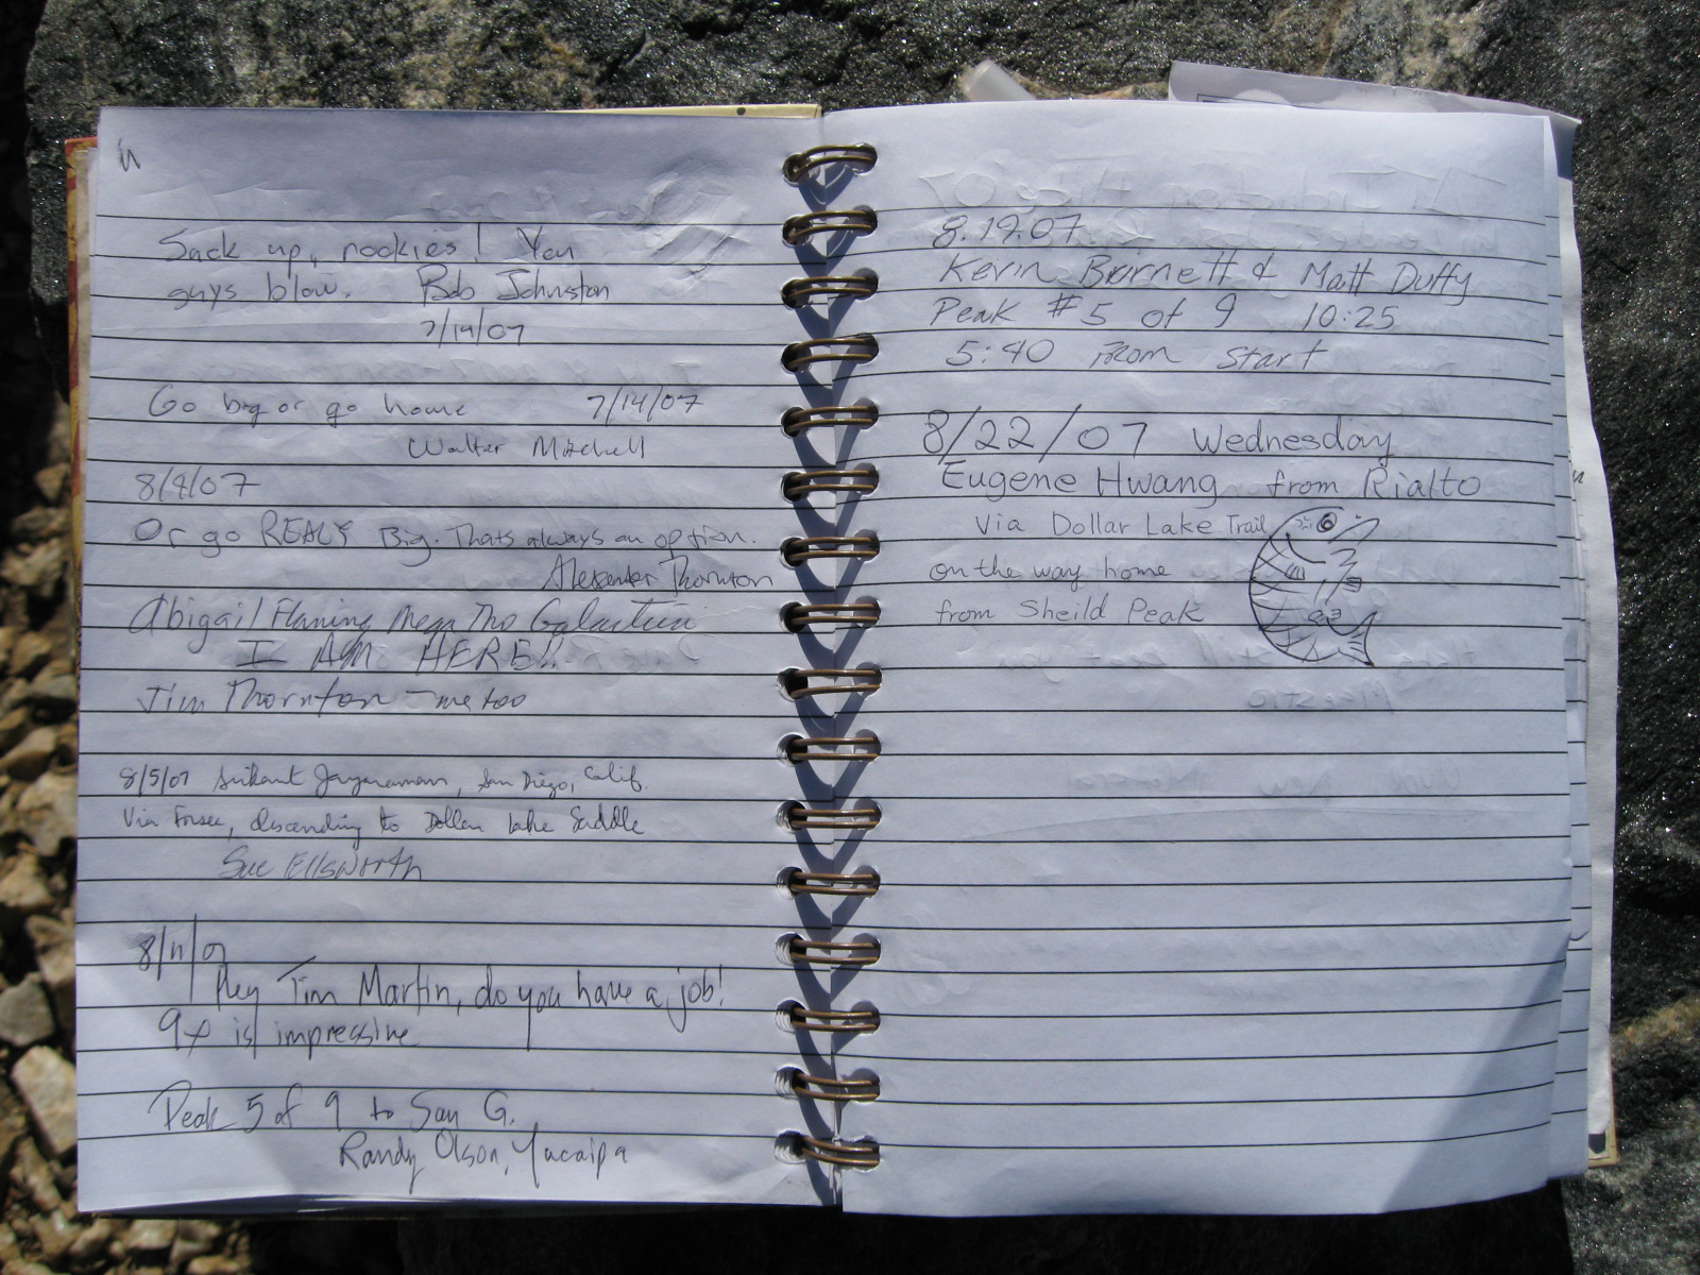 Sack up, rookies! You
guys blow. Bob Johnston
7/14/07
Go big or go home 7/14/07
Walter Mitchell
8/4/07
Or go REALY Big. Thats always an option.
Alexander Thornton
Abigail Flaming Mega Tho
I AM HERE!!
Jim Thornton - me too
8/5/07 Srikant Jayaraman, San Diego, Calif.
Via Forsee, descending to Dollar Lake Saddle
Sue Ellsworth
8/11/07
Hey Tim Martin, do you have a job!
9x is impressive
Peak 5 of 9 to San G.
Randy Olson, Yucaipa
8.19.07
Kevin Burnett & Matt Duffy
Peak #5 of 9 10:25
5:40 From Start
8/22/07 Wednesday
Eugene Hwang from Rialto
Via Dollar Lake Trail
on the way home
from Sheild Peak